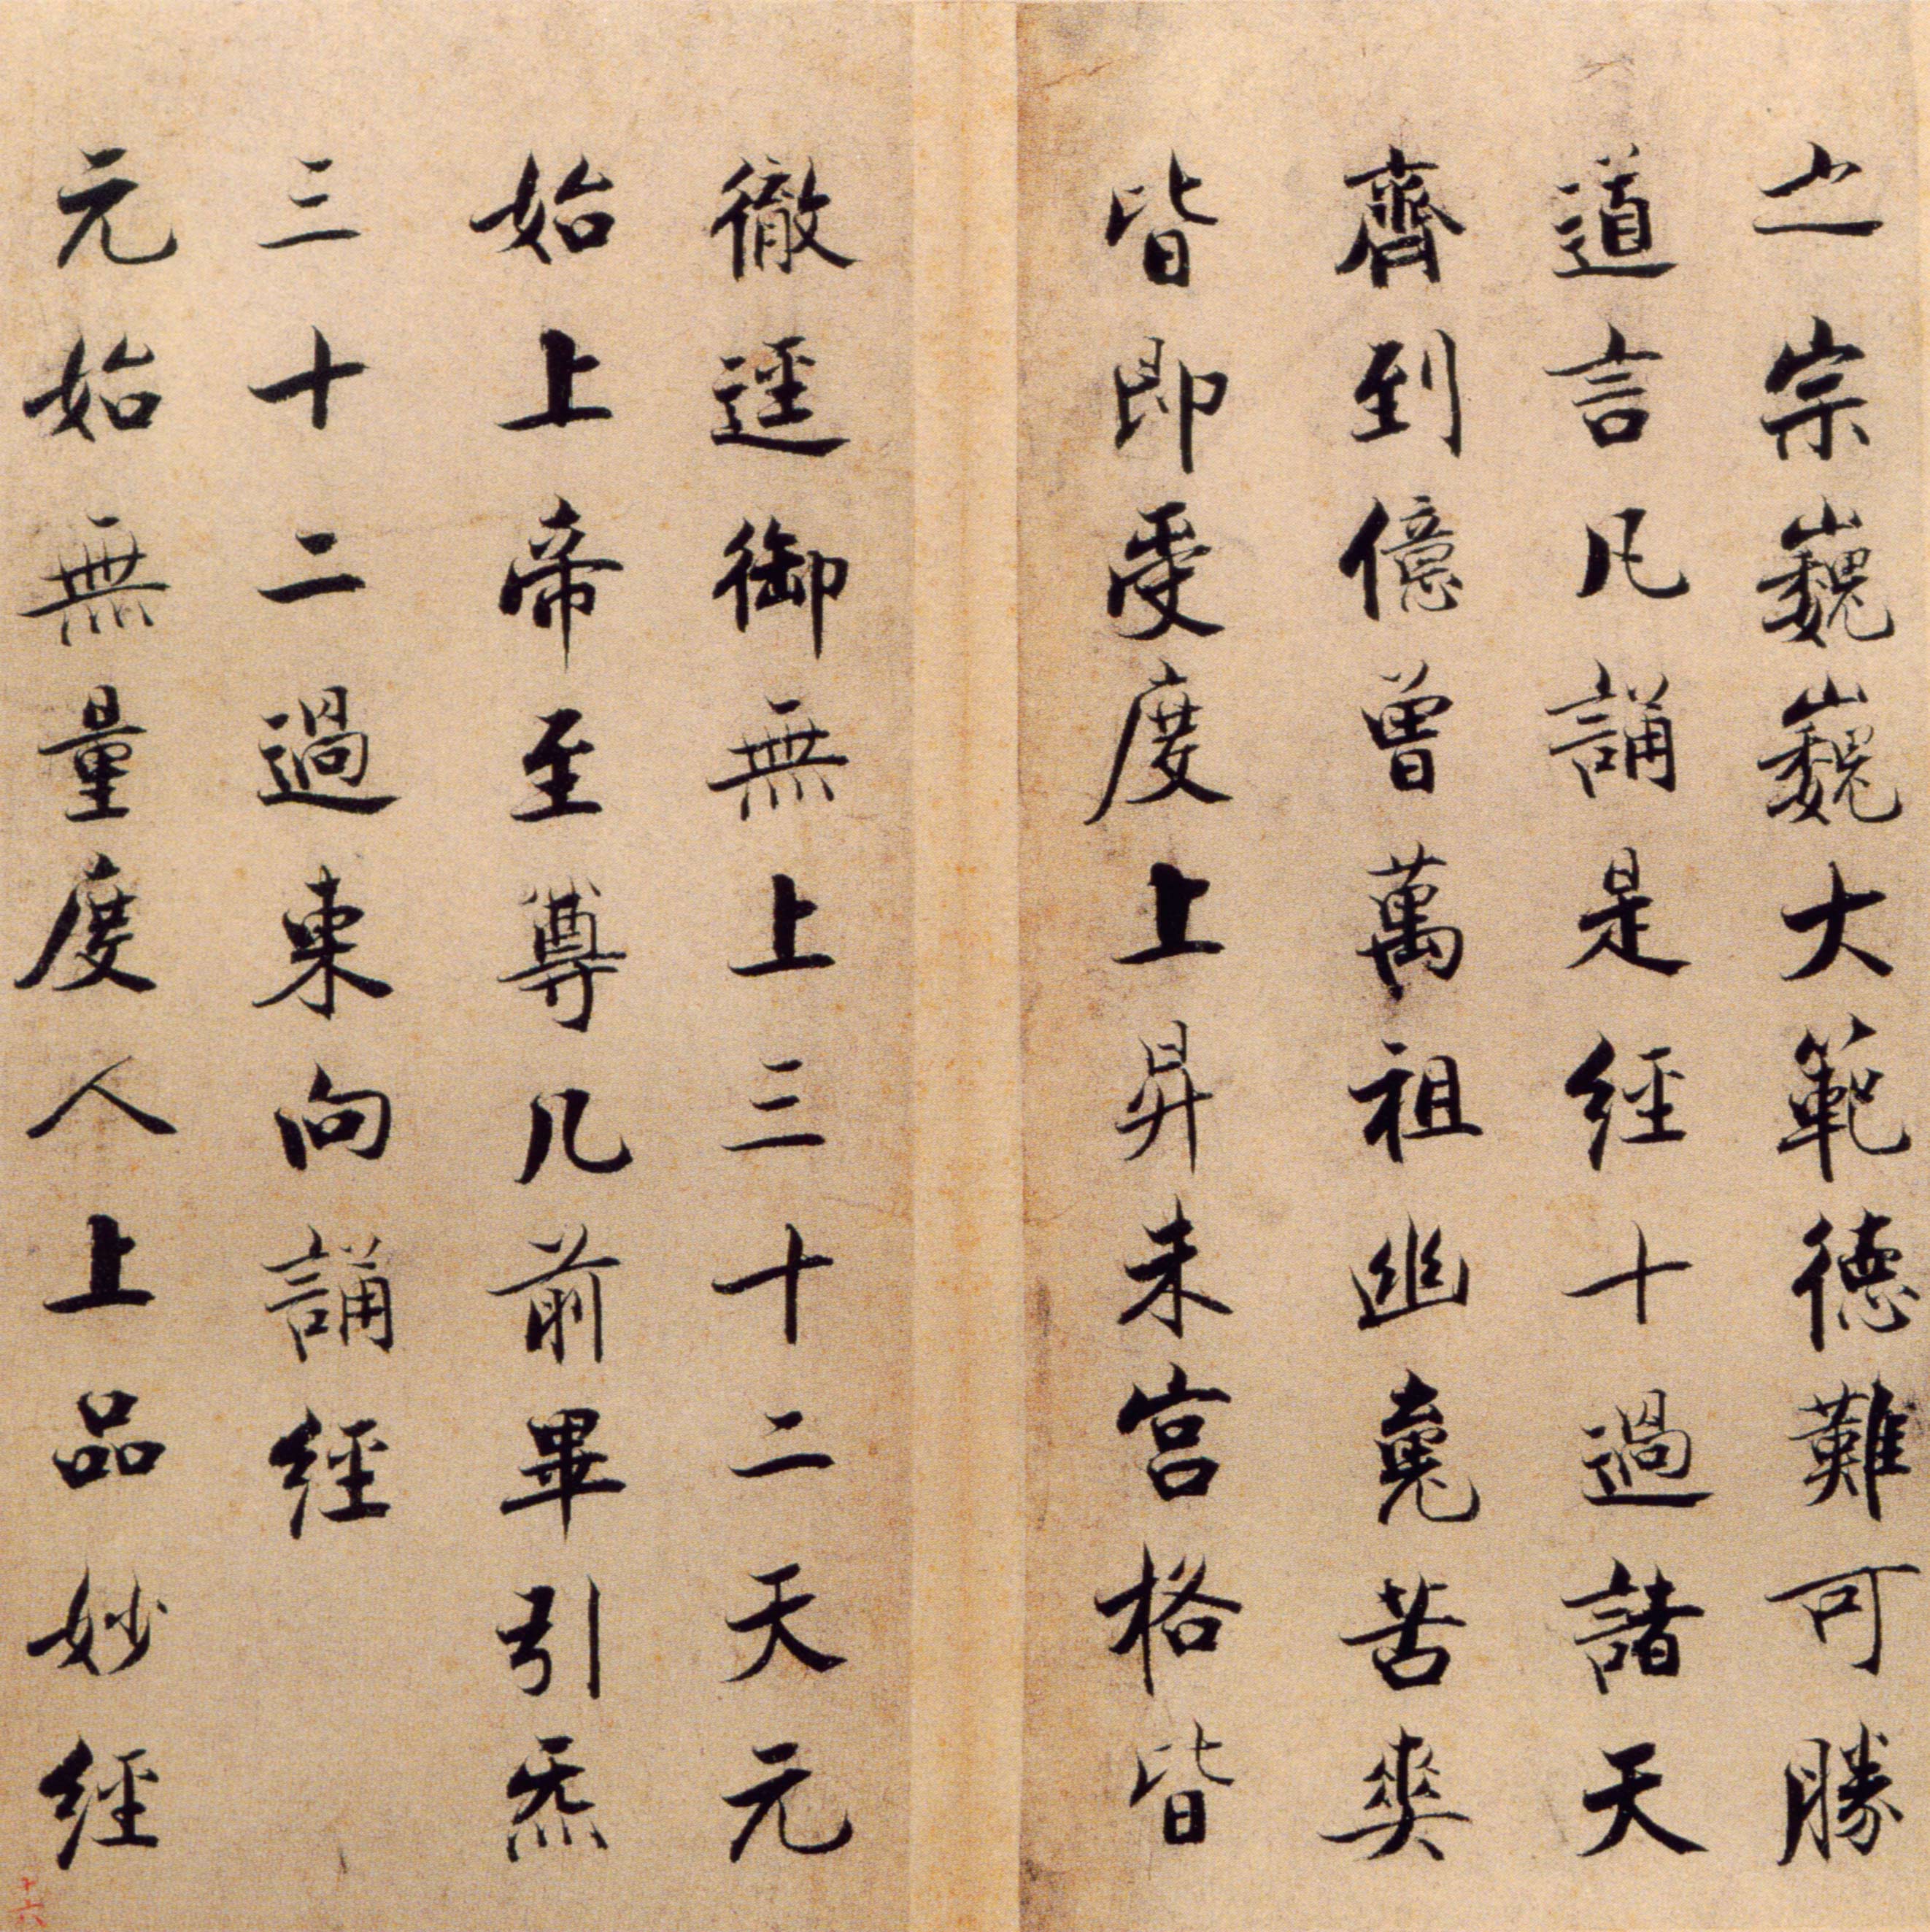 之宗巍巍大範德難可勝
道言凡誦是經十過諸天
齊到億曾萬祖幽䰟苦爽
皆即受度上昇朱宮格皆
徹逕御無上三十二天元
始上帝至尊几前畢引炁
三十二過東向誦經
元始無量度人上品妙經
十六